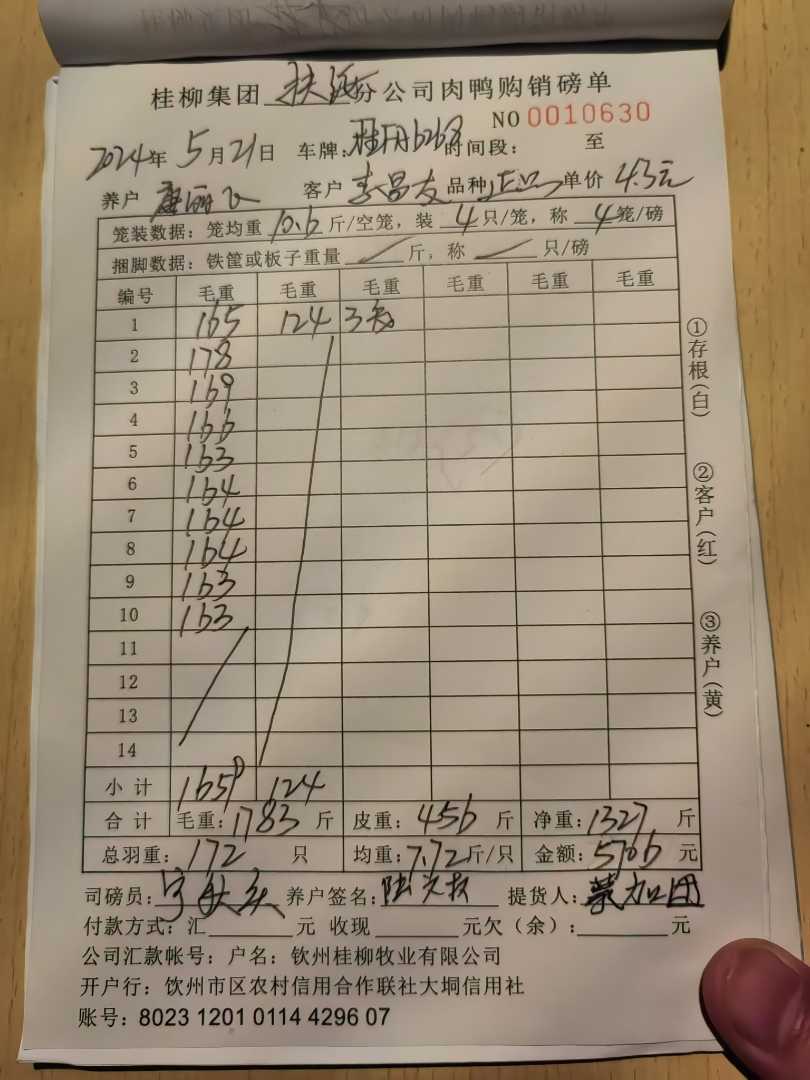 桂柳集团 扶绥分公司肉鸭购销磅单
NO 0010630
2024年 5月21日 车牌: 桂A 6268 时间段: 至
养户 客户 李昌友 品种 正品 单价 4.3元
笼装数据: 笼均重 10.6 斤/空笼, 装 4 只/笼, 称 4 笼/磅
捆脚数据: 铁筐或板子重量 斤, 称 只/磅
编号 毛重 毛重 毛重 毛重 毛重 毛重
1 165 124 3笼
2 178
3 169
4 166
5 163
6 164
7 164
8 164
9 163
10 163
11
12
13
14
小计 1659 124
合计 毛重: 1783 斤 皮重: 456 斤 净重: 1327 斤
总羽重: 172 只 均重: 7.72 斤/只 金额: 5706 元
司磅员: 养户签名: 提货人: 蒙加团
付款方式: 汇 元 收现 元欠(余): 元
公司汇款帐号: 户名: 钦州桂柳牧业有限公司
开户行: 钦州市区农村信用合作联社大垌信用社
账号: 8023 1201 0114 4296 07
①存根(白)
②客户(红)
③养户(黄)